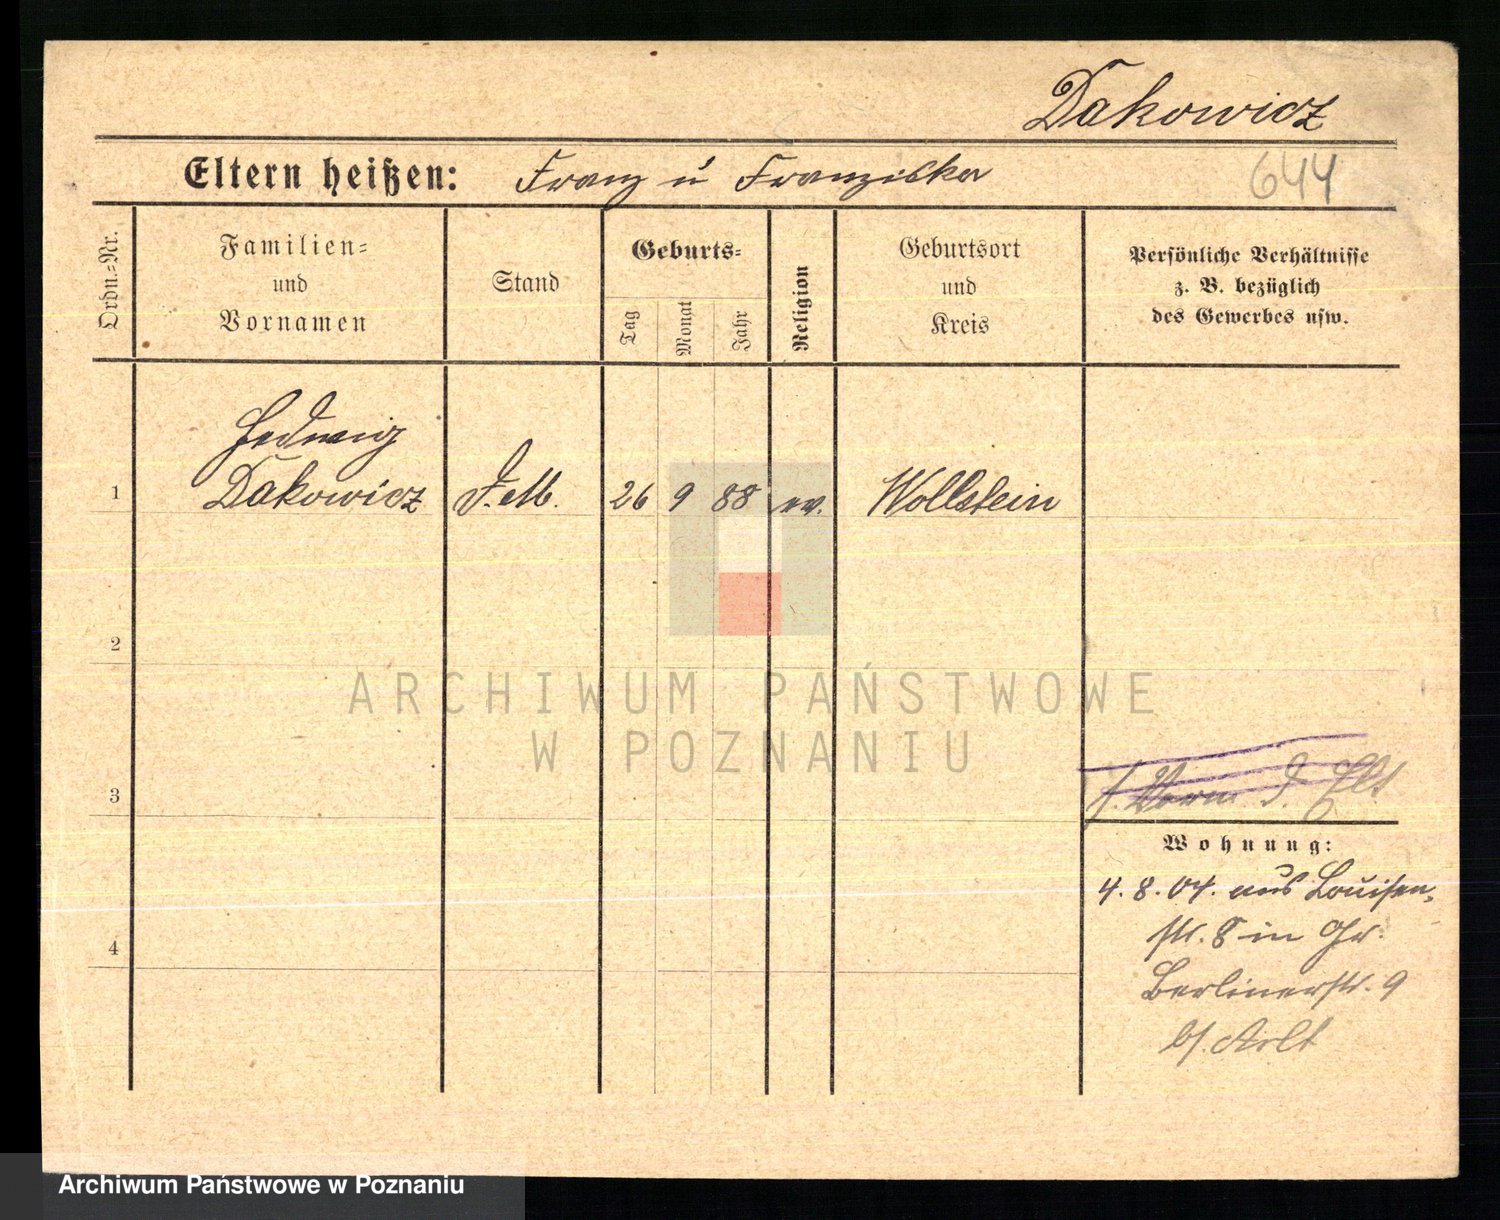 Dakowicz
Eltern heißen: Franz u Franziska 644
Ordn.-Nr.
Familien-
und
Vornamen
Stand
Geburts-
Tag
Monat
Jahr
Religion
Geburtsort
und
Kreis
Persönliche Verhältnisse
z. B. bezüglich
des Gewerbes usw.
Hedwig
1 Dakowicz D. M. 26 9 88 ev. Wollstein
2
ARCHIWUM PAŃSTWOWE
W POZNANIU
3
Wohnung:
4. 8. 04. aus Louisen-
str. 8 in Gr.
4
Berlinerstr. 9
b/. Arlt
Archiwum Państwowe w Poznaniu